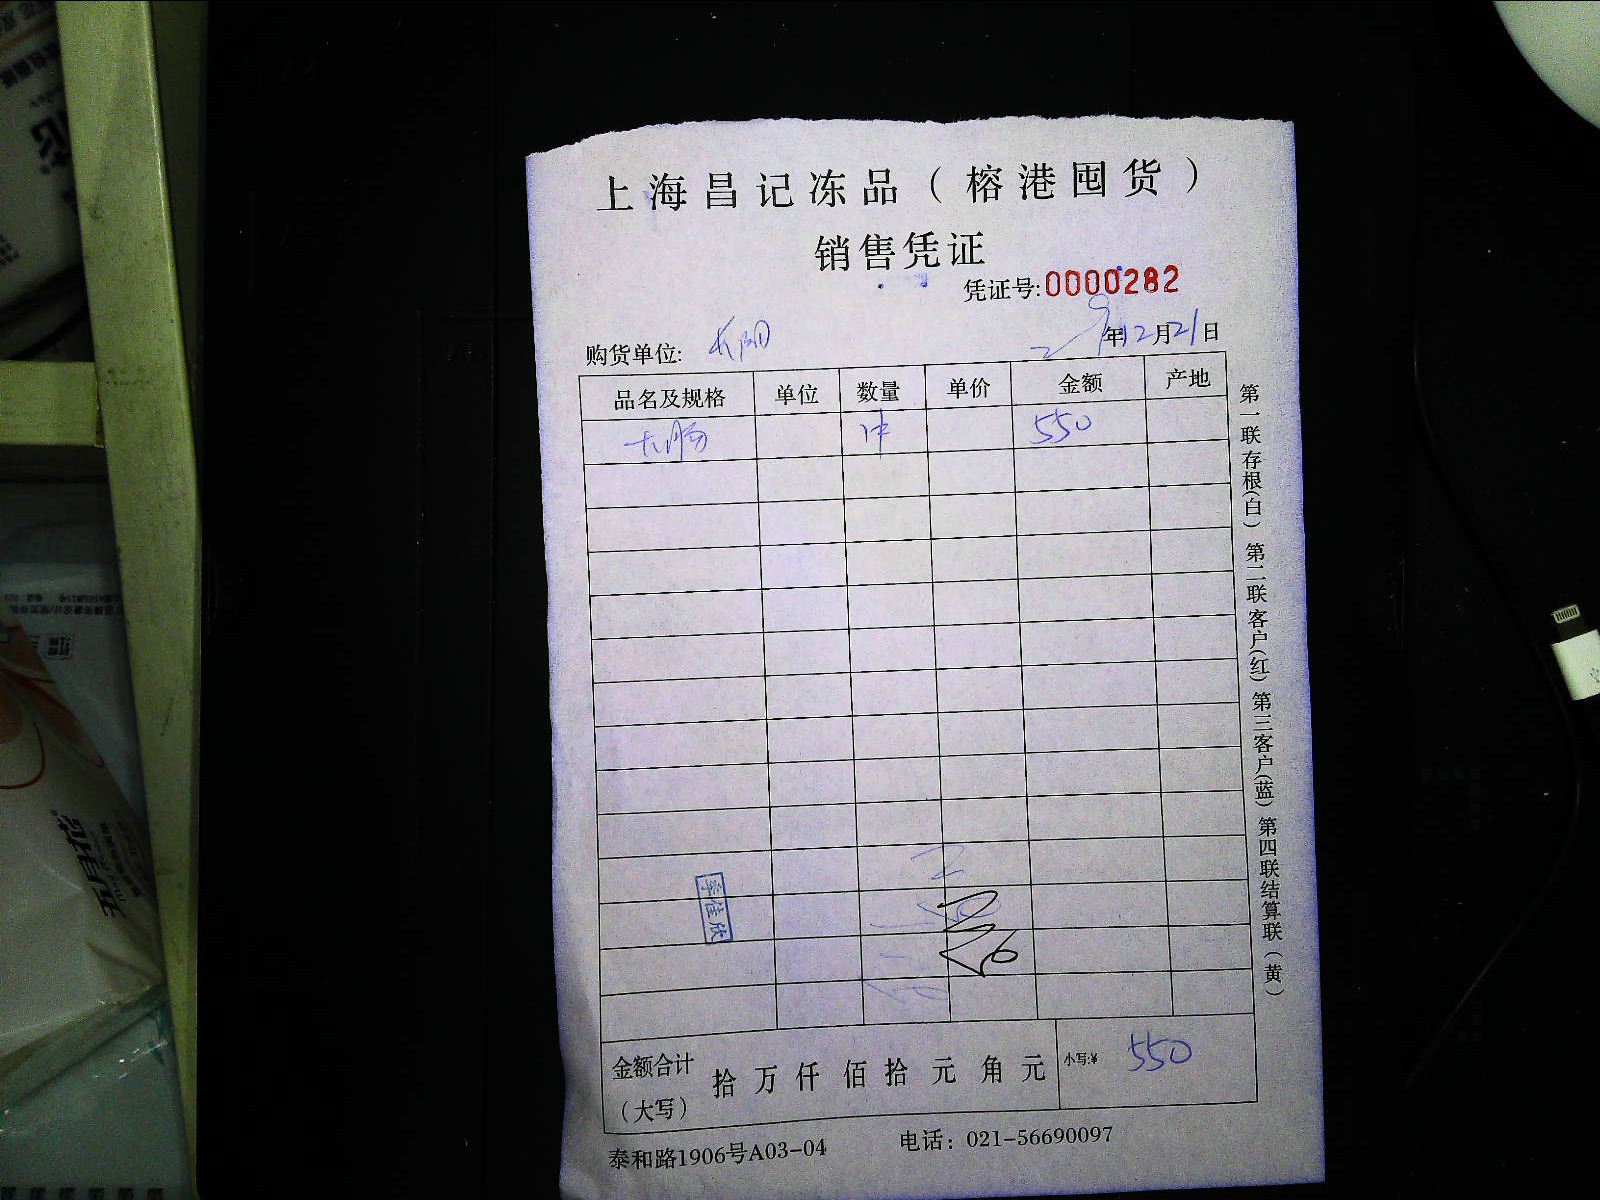 上海昌记冻品（榕港囤货）
销售凭证
凭证号:0000282
购货单位: 长阳
年12月21日
品名及规格 单位 数量 单价 金额 产地
大肠 1件 550
李佳欣
金额合计（大写） 拾 万 仟 佰 拾 元 角 元 小写:¥ 550
泰和路1906号A03-04 电话：021-56690097
第一联存根(白) 第二联客户(红) 第三客户(蓝) 第四联结算联(黄)